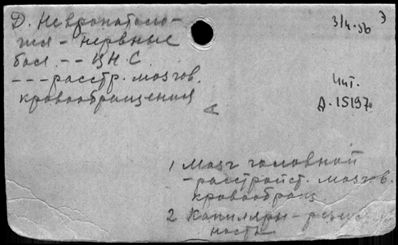 Д. Невропатоло-
гия - нервные
бол. -- ЦНС.
--- расстр. мозгов.
кровообращения
3/4-56
Э
Чит.
Д. 15197
1 Мозг головной
- расстройст. мозгов.
кровообращ
2 Капилляры -
ность